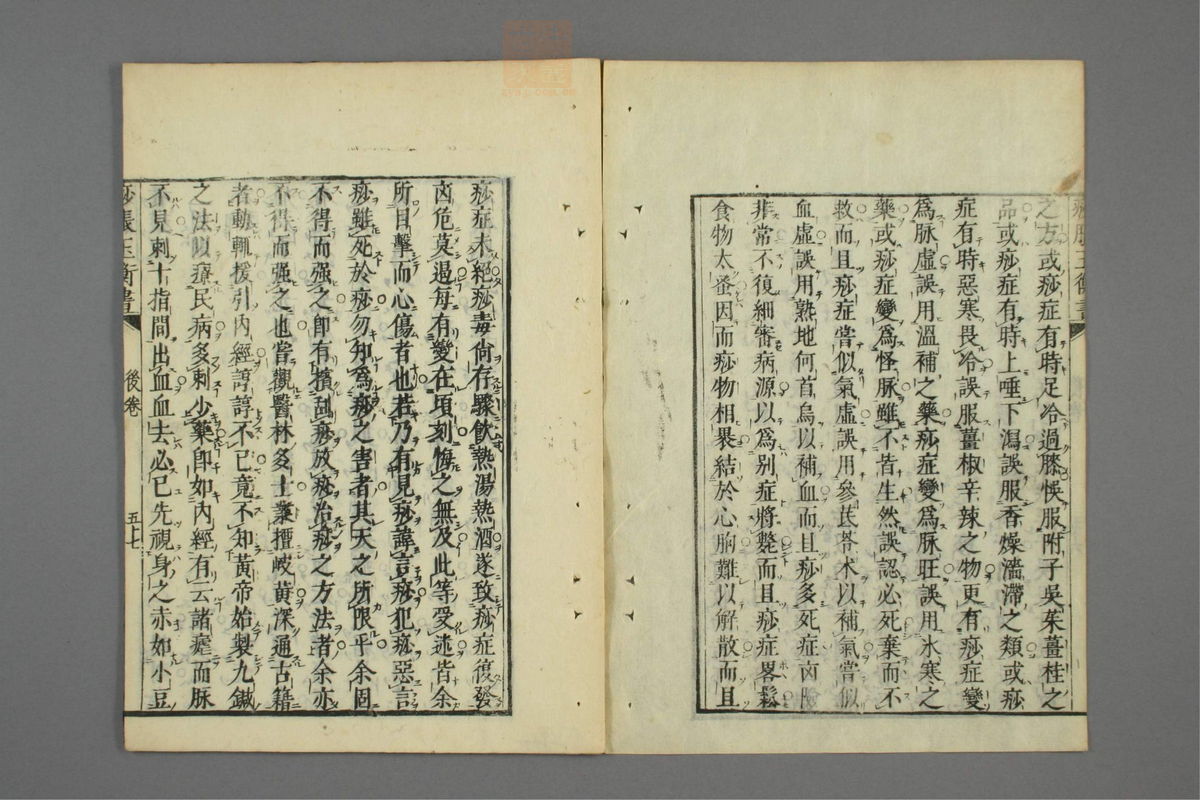 之方或痧症有時足冷過膝悞服附子吳茱薑桂之
品或痧症有時上唾下瀉誤服香燥濇滯之類或痧
症有時惡寒畏冷誤服薑椒辛辣之物更有痧症變
為脉虛誤用溫補之藥痧症變為脉旺誤用氷寒之
藥或痧症變為怪脉雖不皆生然誤認必死棄而不
救而且痧症嘗似氣虛誤用參芪苓术以補氣嘗似
血虛誤用熟地何首烏以補血而且痧多死症㐫險
非常不復細審病源以為别症將斃而且痧症畧鬆
食物太蚤因而痧物相畏結於心胸難以解散而且
痧症未絕痧毒尚存驟飲熱湯熱酒遂致痧症復發
㐫危莫遏每有變在頃刻悔之無及此等受迷皆余
所目擊而心傷者也若乃有見痧諱言痧犯痧惡言
痧雖死於痧勿知為痧之害者其天之所限乎余固
不得而强之即有擯刮痧放痧治痧之方法者余亦
不得而强之也嘗觀醫林多士業擅岐黄深通古籍
者動輒援引内經諄諄不已竟不知黃帝始製九鍼
之法以療民病多刺少藥即如内經有云諸瘧而脉
不見刺十指間出血血去必已先視身之赤如小豆
痧脹玉衡書
後卷
五十七